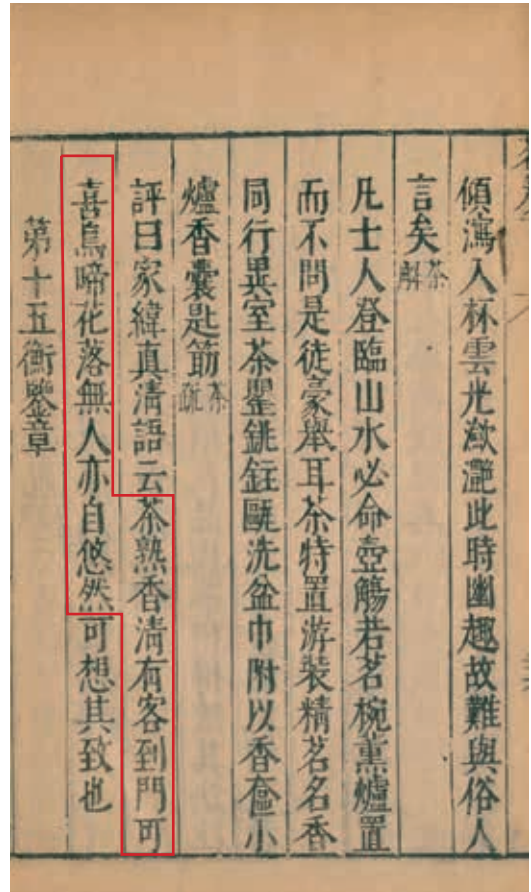 傾瀉入杯雲光瀲灔此時幽趣故難與俗人
言矣茶解
凡士人登臨山水必命壺觴若茗椀熏爐置
而不問是徒豪舉耳茶特置游裝精茗名香
同行異室茶罌銚鉟甌洗盆巾附以香奩小
爐香囊匙筯茶疏
評曰家緯真清語云茶熟香清有客到門可
喜鳥啼花落無人亦自悠然可想其致也
第十五衡鑒章